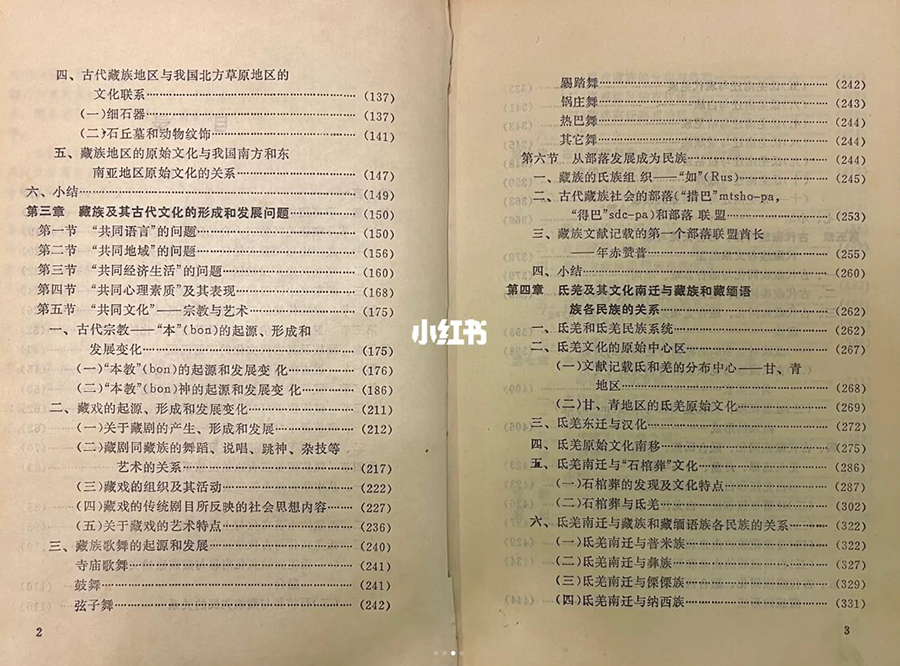 四、古代藏族地区与我国北方草原地区的
文化联系……(137)
(一)细石器……(137)
(二)石丘墓和动物纹饰……(141)
五、藏族地区的原始文化与我国南方和东
南亚地区原始文化的关系……(147)
六、小结……(149)
第三章 藏族及其古代文化的形成和发展问题……(150)
第一节 “共同语言”的问题……(150)
第二节 “共同地域”的问题……(156)
第三节 “共同经济生活”的问题……(160)
第四节 “共同心理素质”及其表现……(168)
第五节 “共同文化”——宗教与艺术……(175)
一、古代宗教——“本”(bon)的起源、形成和
发展变化……(175)
(一)“本教”(bon)的起源和发展变 化……(176)
(二)“本教”(bon)神的起源和发展变 化……(186)
二、藏戏的起源、形成和发展变化……(211)
(一)关于藏剧的产生、形成和发展……(212)
(二)藏剧同藏族的舞蹈、说唱、跳神、杂技等
艺术的关系……(217)
(三)藏戏的组织及其活动……(222)
(四)藏戏的传统剧目所反映的社会思想内容……(227)
(五)关于藏戏的艺术特点……(236)
三、藏族歌舞的起源和发展……(240)
寺庙歌舞……(241)
鼓舞……(241)
弦子舞……(242)
2
踢踏舞……(242)
锅庄舞……(243)
热巴舞……(244)
其它舞……(244)
第六节 从部落发展成为民族……(244)
一、藏族的氏族组 织——“如”(Rus)……(245)
二、古代藏族社会的部落(“措巴”mtsho-pa,
“得巴”sdc-pa)和部落 联 盟……(253)
三、藏族文献记载的第一个部落联盟酋长
——年赤赞普……(255)
四、小结……(260)
第四章 氐羌及其文化南迁与藏族和藏缅语
族各民族的关系……(262)
一、氐羌和氐羌民族系统……(262)
二、氐羌文化的原始中心区……(267)
(一)文献记载氐和羌的分布中心——甘、青
地区……(268)
(二)甘、青地区的氐羌原始文化……(269)
三、氐羌东迁与汉化……(272)
四、氐羌原始文化南移……(275)
五、氐羌南迁与“石棺葬”文化……(286)
(一)石棺葬的发现及文化特点……(287)
(二)石棺葬与氐羌……(302)
六、氐羌南迁与藏族和藏缅语族各民族的关系……(322)
(一)氐羌南迁与普米族……(322)
(二)氐羌南迁与彝族……(327)
(三)氐羌南迁与傈僳族……(329)
(四)氐羌南迁与纳西族……(331)
3
小红书